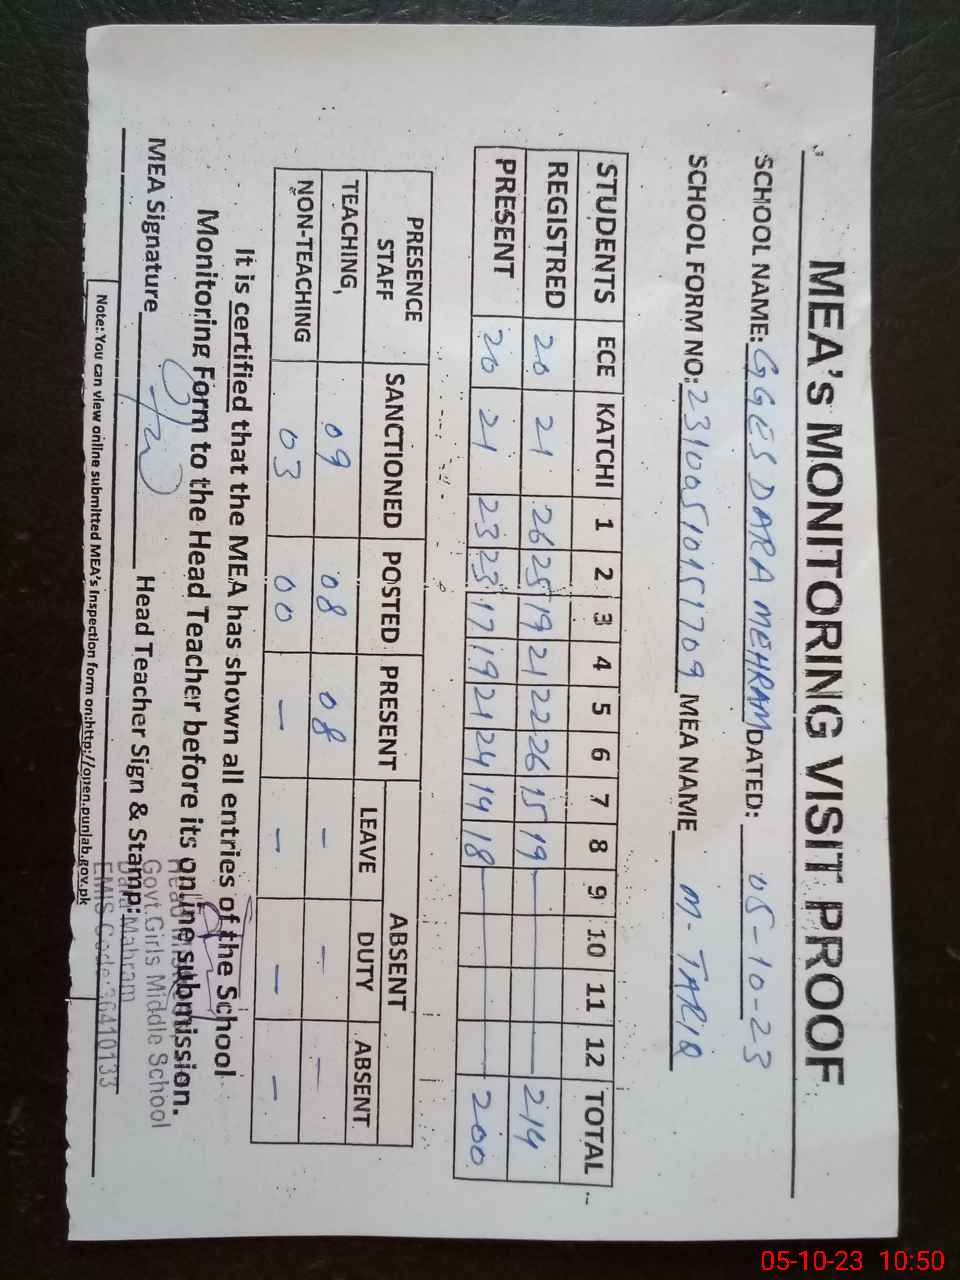 MEA's MONITORING VISIT PROOF
SCHOOL NAME: GGES DARA MEHRAM DATED: 05-10-23
SCHOOL FORM NO: 23100510151709 MEA NAME M-TARIQ
STUDENTS ECE KATCHI 1 2 3 4 5 6 7 8 9 10 11 12 TOTAL
REGISTRED 20 21 26 25 19 21 22 26 15 19 214
PRESENT 20 21 23 23 17 19 21 24 14 18 200
PRESENCE STAFF SANCTIONED POSTED PRESENT ABSENT
LEAVE DUTY ABSENT
TEACHING, 09 08 08 - - -
NON-TEACHING 03 00 - - - -
It is certified that the MEA has shown all entries of the School
Monitoring Form to the Head Teacher before its online submission.
MEA Signature Head Teacher Sign & Stamp:
Govt.Girls Middle School
Dara Mahram
EMIS Code:36410133
Note: You can view online submitted MEA's Inspection form on:http://open.punjab.gov.pk
05-10-23 10:50